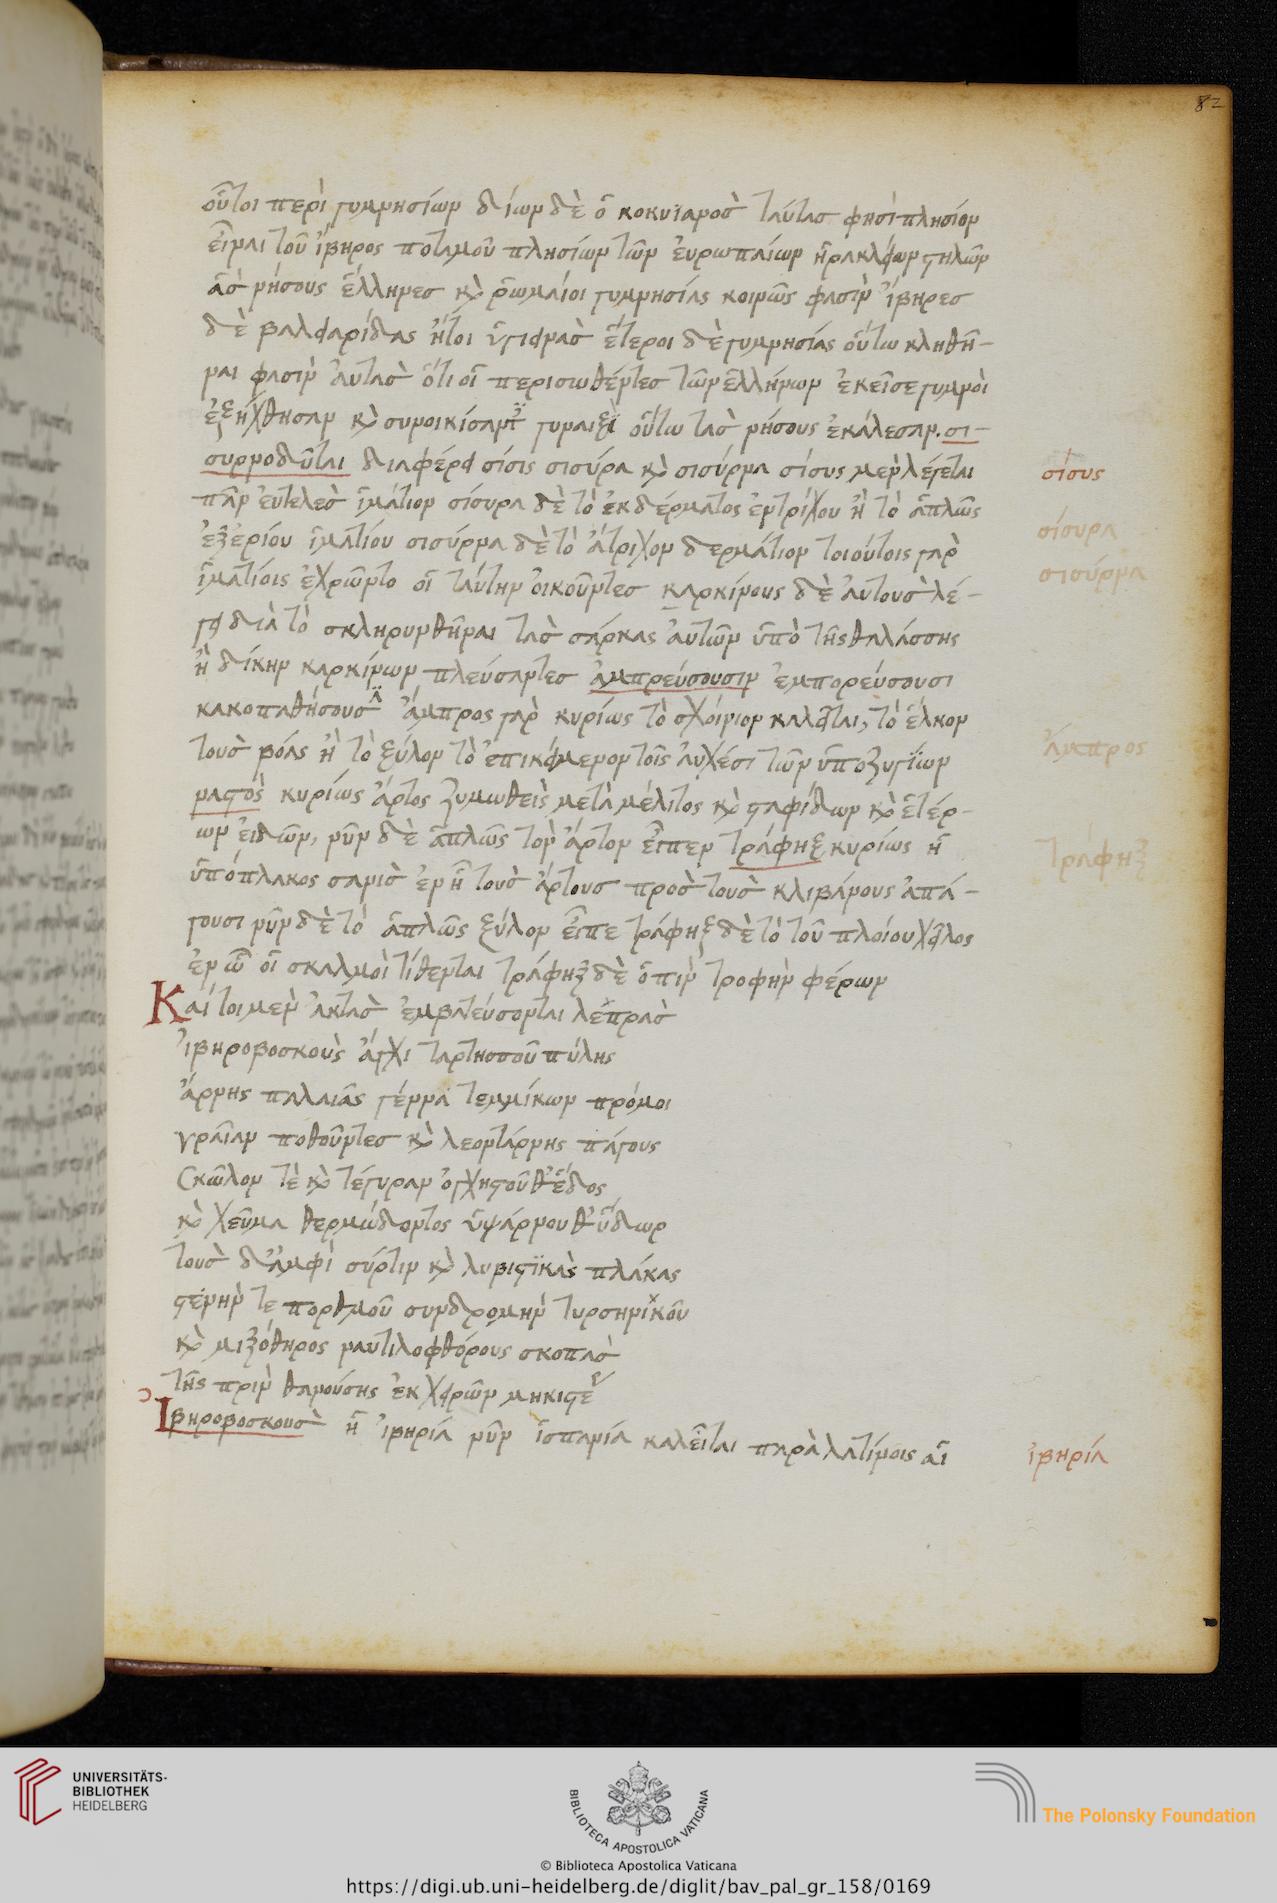 82
οὗτοι περὶ γυμνησίων δίων δὲ ὁ κοκκιανὸς ταύτας φησὶ πλησίον
εἶναι τοῦ ἴβηρος ποταμοῦ πλησίων τῶν ἐυρωπαίων ἡρακλείων στηλῶν
ἃς νήσους ἕλληνες κὶ ῥωμαίοι γυμνησίας κοινῶς φασὶν ἴβηρες
δὲ βαλεαρίδας ἤτοι ὑγιεινὰς ἕτεροι δὲ γυμνησίας οὕτω κληθῆ-
ναι φασὶν ἀυτὰς ὅτι οἱ περισωθέντες τῶν ἑλλήνων ἐκεῖσε γυμνοὶ
ἐξήχθησαν κὶ συνοικίσαντ γυναιξὶ οὕτω τὰς νήσους ἐκάλεσαν. σι-
συρνοδῦται διαφέρει σίσυς σισύρα κὶ σισύρνα σίσυς μὲν λέγεται
πᾶν ἐυτελὲς ἱμάτιον σίσυρα δὲ τὸ ἐκ δέρματος ἐντρίχου ἢ τὸ ἁπλῶς
ἐξ ἐρίου ἱματίου σισύρνα δὲ τὸ ἄτριχον δερμάτιον τοιούτοις γὰρ
ἱματίοις ἐχρῶντο οἱ ταύτην ὀικοῦντες καρκίνους δὲ ἀυτοὺς λέ-
γει διὰ τὸ σκληρυνθῆναι τὰς σάρκας ἀυτῶν ὑπὸ τῆς θαλάσσης
ἢ δίκην καρκίνων πλεύσαντες ἀμπρεύσουσιν ἐμπορεύσουσι
κακοπαθήσουσ ἄμπρος γὰρ κυρίως τὸ σχοινίον καλεῖται, τὸ ἕλκον
τοὺς βόας ἢ τὸ ξύλον τὸ ἐπικείμενον τοῖς ἀυχέσι τῶν ὑποζυγίων
μαστὸς κυρίως ἄρτος ζυμωθεὶς μετὰ μέλιτος κὶ σταφίδων κὶ ἑτέρ-
ων ἐιδῶν, νῦν δὲ ἁπλῶς τὸν ἄρτον εἶπεν τράφηξ κυρίως ἡ
ὑπόπλακος σανὶς ἐν ᾗ τοὺς ἄρτους πρὸς τοὺς κλιβάνους ἀπά-
γουσι νῦν δὲ τὸ ἁπλῶς ξύλον εἶπε τράφηξ δὲ τὸ τοῦ πλοίου χεῖλος
ἐν ᾧ οἱ σκαλμοὶ τίθενται τράφηξ δὲ ὅπιν τροφὴν φέρων
Καί τοι μὲν ἀκτὰς ἐμβατεύσονται λέπρας
ἰβηροβοσκοὺς ἄγχι ταρτησσοῦ πύλης
ἄρνης παλαιᾶς γέννα τεμμίκων πρόμοι
γραῖαν ποθοῦντες κὶ λεοντάρνης πάγους
Σκῶλον τὲ κὶ τέγυραν ὀγχηστοῦ θ' ἕδος
κὶ χεῦμα θερμώδοντος ὑψάρνου θ' ὕδωρ
τοὺς δ' ἀμφὶ σύρτιν κὶ λυβιστϊκὰς πλάκας
στενήν τε πορθμοῦ συνδρομὴν τυρσηνϊκοῦ
κὶ μιξόθηρος ναυτιλοφθόρους σκοπὰς
τῆς πρὶν θανούσης ἐκ χειρῶν μηκιστέ
Ἰβηροβοσκοὺς ἡ ἰβηρία νῦν ἱσπανία καλεῖται παρὰ λατίνοις αἱ
σίσυς
σίσυρα
σισύρνα
ἄμπρος
τράφηξ
ἰβηρία
UNIVERSITÄTS-
BIBLIOTHEK
HEIDELBERG
BIBLIOTECA APOSTOLICA VATICANA
The Polonsky Foundation
© Biblioteca Apostolica Vaticana
https://digi.ub.uni-heidelberg.de/diglit/bav_pal_gr_158/0169